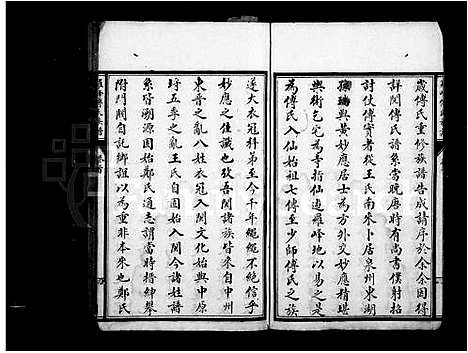 歲傅氏重修族譜告成請序於余余因得
詳閱傅氏譜系當晚唐時有尚書僕射招
討使傅實者從王氏南來卜居泉州東湖
與黃妙應居士為方外交妙應精堪
輿術乞完為李指仙遊羅峰地以易之是
為傅氏入仙始祖七傳至少師傅氏之族
遂大衣冠科第至今千年繩繩不絕信乎
妙應之佳讖也攷吾閩諸族皆來自中州
東晉之亂八姓衣冠入閩文化始與中原
埒五季之亂王氏自固始入閩今諸姓譜
系皆溯源固始鄭氏通志謂當時搢紳舉
附門閥自託鄉誼以為重非本來也鄭氏